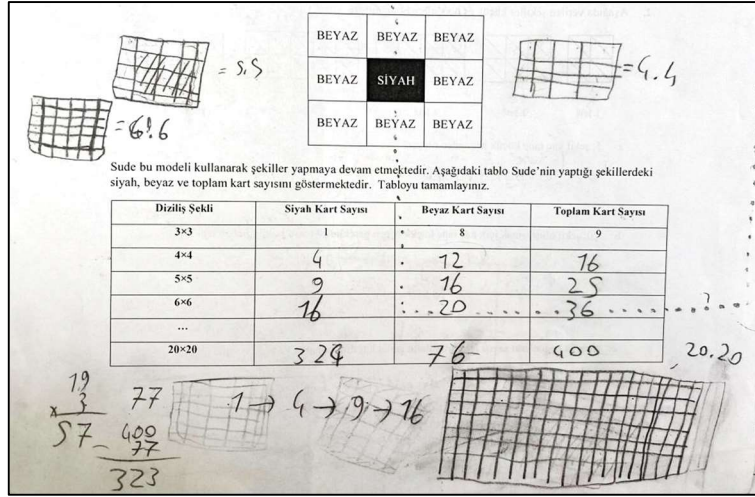 BEYAZ BEYAZ BEYAZ
= 5.5
BEYAZ SİYAH BEYAZ
= 4.4
= 6.6
BEYAZ BEYAZ BEYAZ
Sude bu modeli kullanarak şekiller yapmaya devam etmektedir. Aşağıdaki tablo Sude'nin yaptığı şekillerdeki
siyah, beyaz ve toplam kart sayısını göstermektedir. Tabloyu tamamlayınız.
Diziliş Şekli Siyah Kart Sayısı Beyaz Kart Sayısı Toplam Kart Sayısı
3×3 1 8 9
4×4 4 12 16
5×5 9 16 25
6×6 16 20 36
...
20×20 324 76 400 20.20
1 → 4 → 9 → 16
19
x 3
57
77
400
- 77
323